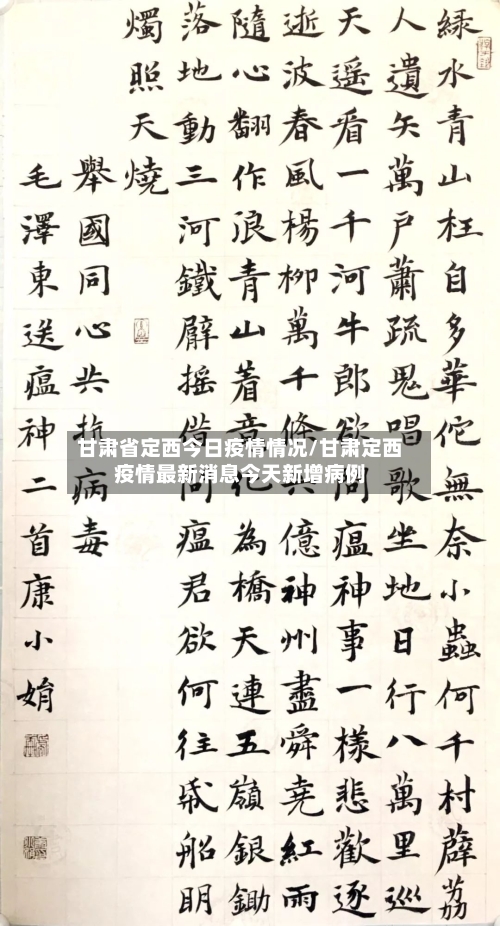 綠水青山枉自多華佗無奈小蟲何千村薜荔
人遺矢萬戶蕭疏鬼唱歌坐地日行八萬里巡
天遥看一千河牛郎欲問瘟神事一樣悲歡逐
逝波春風楊柳萬千條六億神州盡舜堯紅雨
隨心翻作浪青山着意化為橋天連五嶺銀鋤
落地動三河鐵臂摇借問瘟君欲何往帋船明
燭照天燒
舉國同心共抗病毒
毛澤東送瘟神二首康小娟
甘肃省定西今日疫情情况/甘肃定西
疫情最新消息今天新增病例